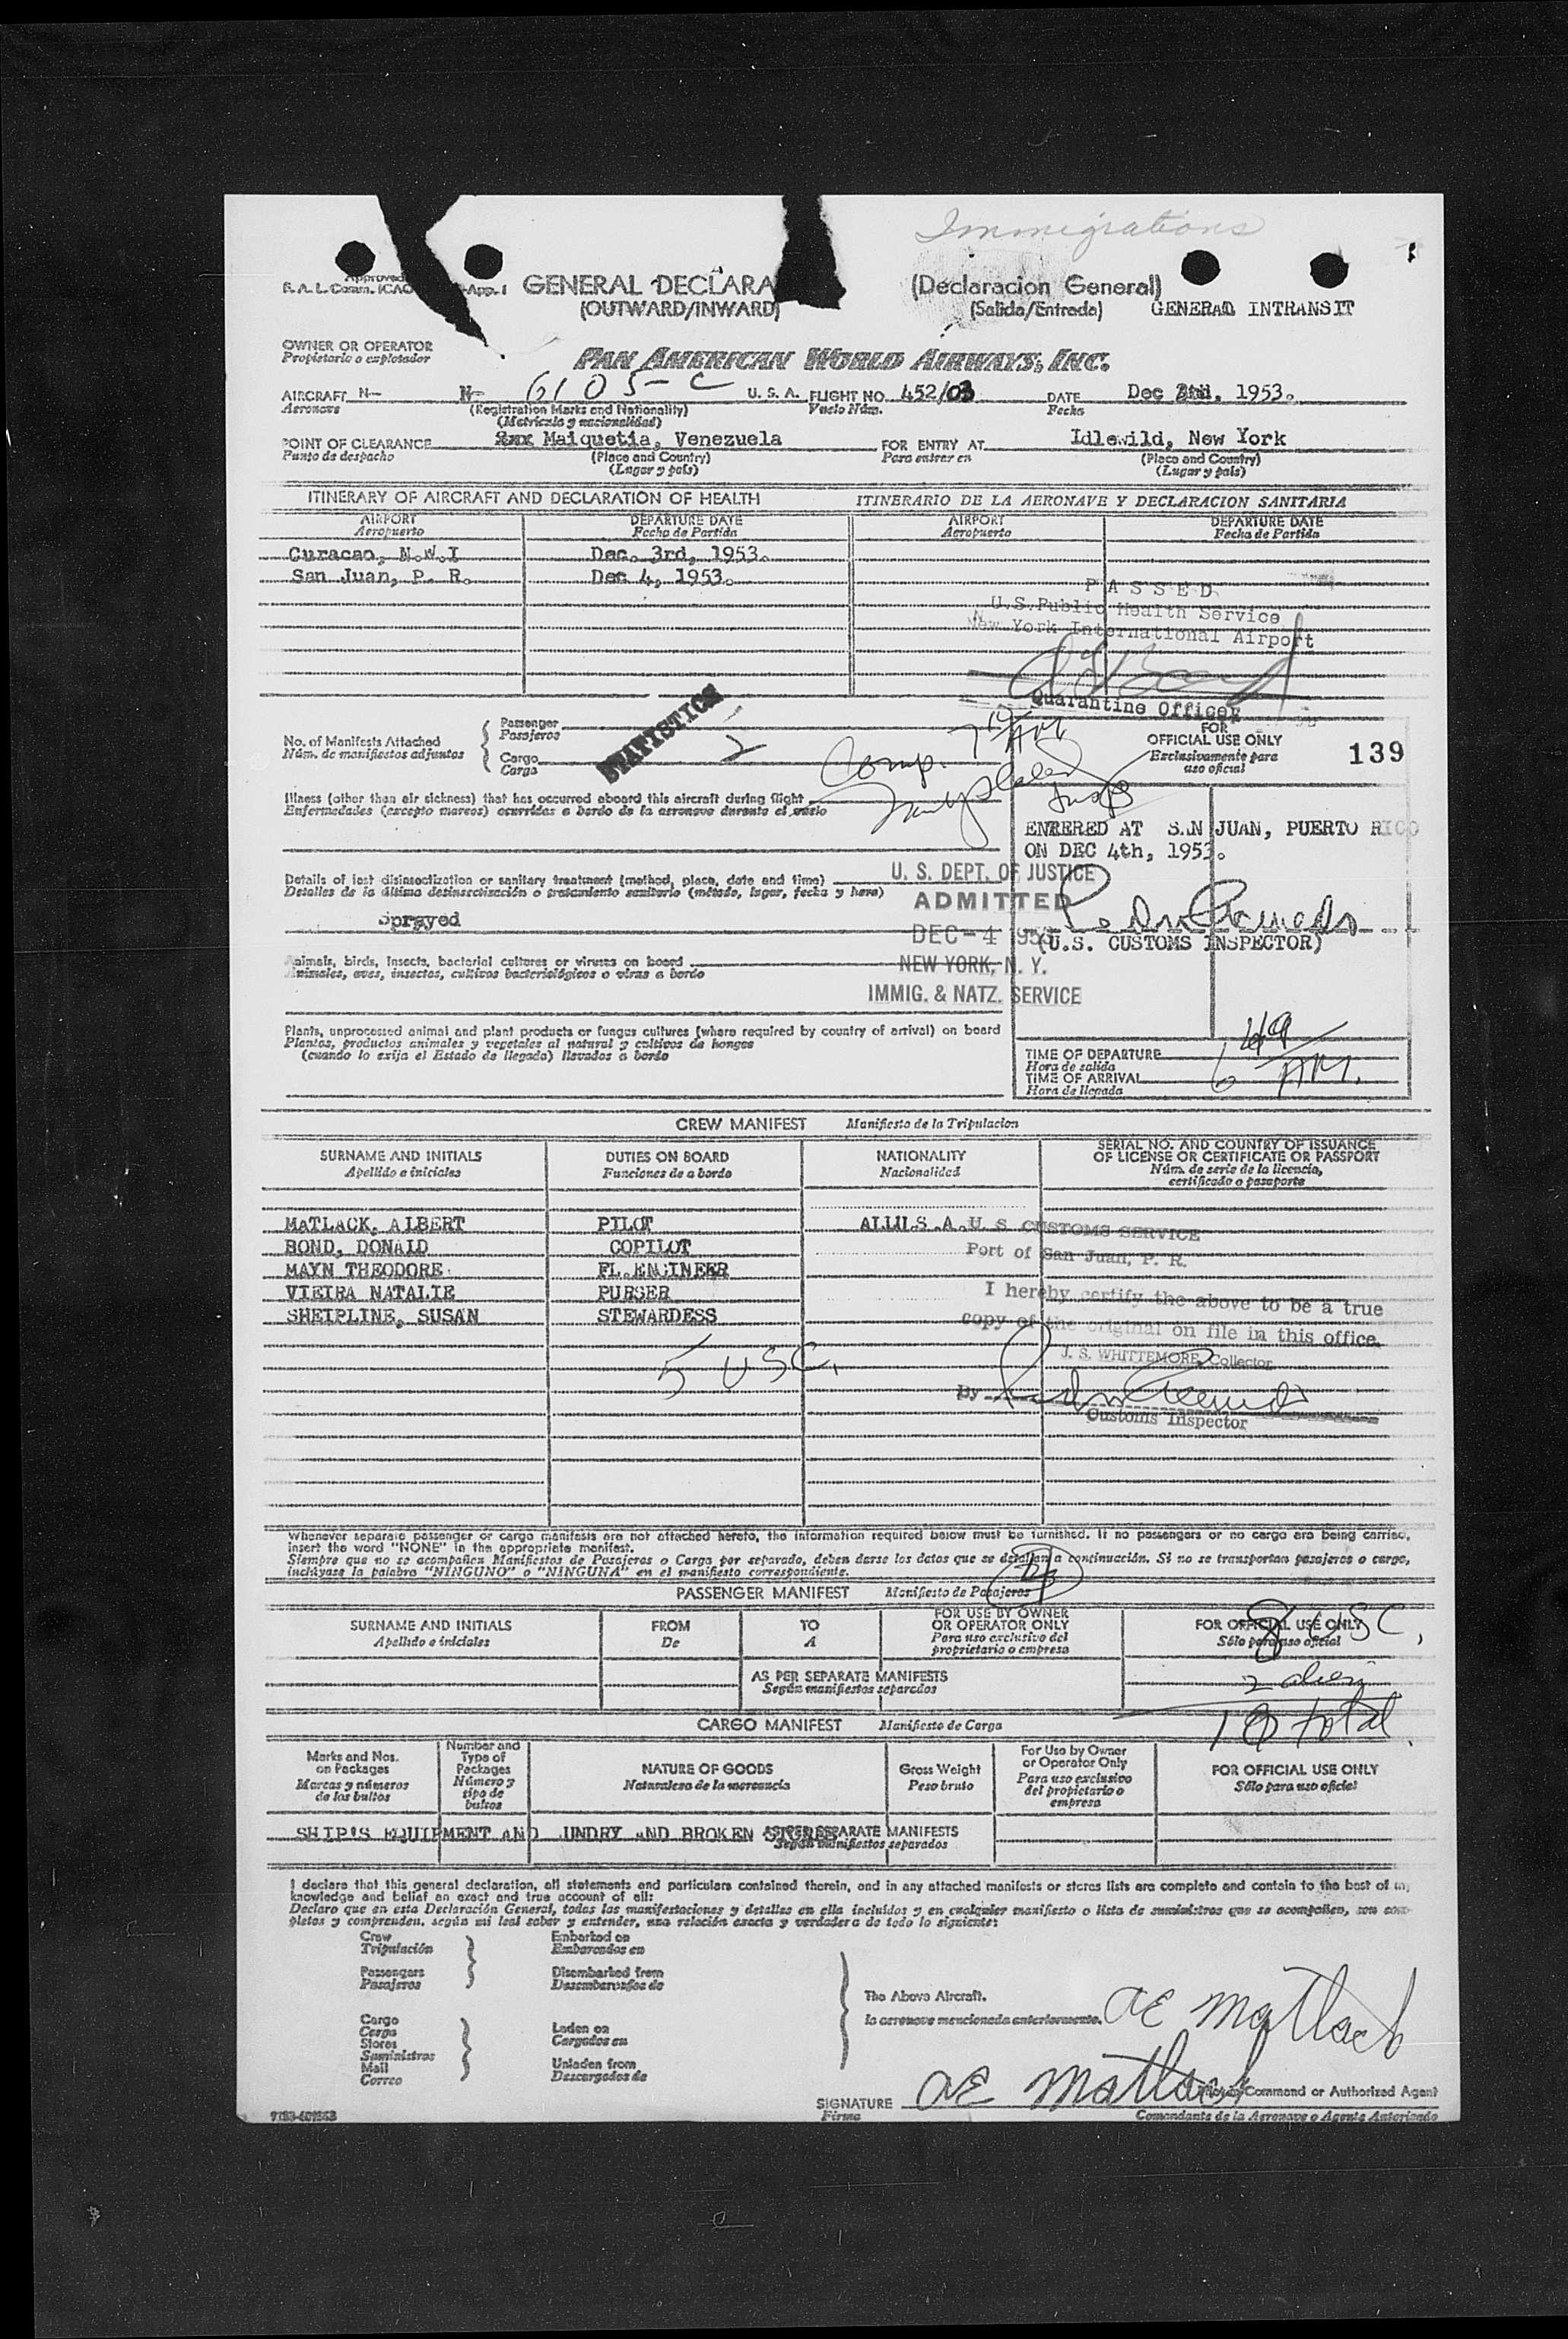 Immigrations
Approved
B. A. L. Comm. ICAO -App. 1
GENERAL DECLARA (Declaracion General)
(OUTWARD/INWARD) (Salida/Entrada) GENERAL INTRANSIT
OWNER OR OPERATOR
Propietario o explotador
PAN AMERICAN WORLD AIRWAYS, INC.
AIRCRAFT N- N- 6105-C U. S. A. FLIGHT NO. 452/03 DATE Dec 3rd, 1953.
Aeronave (Registration Marks and Nationality) Vuelo Núm. Fecha
(Matrícula y nacionalidad)
POINT OF CLEARANCE Maiquetia, Venezuela FOR ENTRY AT Idlewild, New York
Punto de despacho (Place and Country) Para entrar en (Place and Country)
(Lugar y país) (Lugar y país)
ITINERARY OF AIRCRAFT AND DECLARATION OF HEALTH ITINERARIO DE LA AERONAVE Y DECLARACION SANITARIA
AIRPORT DEPARTURE DATE AIRPORT DEPARTURE DATE
Aeropuerto Fecha de Partida Aeropuerto Fecha de Partida
Curacao, N.W.I Dec. 3rd, 1953.
San Juan, P. R. Dec 4, 1953.
PASSED
U.S. Public Health Service
New York International Airport
Quarantine Officer
STATISTICS
No. of Manifests Attached
Núm. de manifiestos adjuntos
Passenger
Pasajeros
Cargo
Carga
2
Comp. 7 10 AM
FOR
OFFICIAL USE ONLY
Exclusivamente para
uso oficial
139
Illness (other than air sickness) that has occurred aboard this aircraft during flight
Enfermedades (excepto mareos) ocurridas a bordo de la aeronave durante el vuelo
ENTERED AT SAN JUAN, PUERTO RICO
ON DEC 4th, 1953.
(U.S. CUSTOMS INSPECTOR)
Details of last disinsectization or sanitary treatment (method, place, date and time)
Detalles de la última desinsectización o tratamiento sanitario (método, lugar, fecha y hora)
Sprayed
U. S. DEPT. OF JUSTICE
ADMITTED
DEC-4 1953
NEW YORK, N. Y.
IMMIG. & NATZ. SERVICE
Animals, birds, insects, bacterial cultures or viruses on board
Animales, aves, insectos, cultivos bacteriológicos o virus a bordo
Plants, unprocessed animal and plant products or fungus cultures (where required by country of arrival) on board
Plantas, productos animales y vegetales al natural y cultivos de hongos
(cuando lo exija el Estado de llegada) llevados a bordo
TIME OF DEPARTURE
Hora de salida
TIME OF ARRIVAL 6 49 AM.
Hora de llegada
CREW MANIFEST Manifiesto de la Tripulacion
SURNAME AND INITIALS DUTIES ON BOARD NATIONALITY SERIAL NO. AND COUNTRY OF ISSUANCE
OF LICENSE OR CERTIFICATE OR PASSPORT
Apellido e iniciales Funciones de a bordo Nacionalidad Núm. de serie de la licencia,
certificado o pasaporte
MATLACK, ALBERT PILOT ALL U.S.A.
BOND, DONALD COPILOT
MAYN THEODORE FL.ENGINEER
VIEIRA NATALIE PURSER
SHEIPLINE, SUSAN STEWARDESS
U S CUSTOMS SERVICE
Port of San Juan, P. R.
I hereby certify the above to be a true
copy of the original on file in this office.
J. S. WHITTEMORE, Collector
By
Customs Inspector
5 USC.
Whenever separate passenger or cargo manifests are not attached hereto, the information required below must be furnished. If no passengers or no cargo are being carried,
insert the word "NONE" in the appropriate manifest.
Siempre que no se acompañen Manifiestos de Pasajeros o Carga por separado, deben darse los datos que se detallan a continuación. Si no se transportan pasajeros o carga,
inclúyase la palabra "NINGUNO" o "NINGUNA" en el manifiesto correspondiente.
PASSENGER MANIFEST Manifiesto de Pasajeros
SURNAME AND INITIALS FROM TO FOR USE BY OWNER
OR OPERATOR ONLY FOR OFFICIAL USE ONLY
Apellido e iniciales De A Para uso exclusivo del
propietario o empresa Sólo para uso oficial
8 USC.
AS PER SEPARATE MANIFESTS
Según manifiestos separados
2 alien
10 total
CARGO MANIFEST Manifiesto de Carga
Marks and Nos.
on Packages
Marcas y números
de los bultos
Number and
Type of
Packages
Número y
tipo de
bultos
NATURE OF GOODS
Naturaleza de la mercancía
Gross Weight
Peso bruto
For Use by Owner
or Operator Only
Para uso exclusivo
del propietario o
empresa
FOR OFFICIAL USE ONLY
Sólo para uso oficial
SHIP'S EQUIPMENT AND UNDRY AND BROKEN STORES
AS PER SEPARATE MANIFESTS
Según manifiestos separados
I declare that this general declaration, all statements and particulars contained therein, and in any attached manifests or stores lists are complete and contain to the best of my
knowledge and belief an exact and true account of all:
Declaro que en esta Declaración General, todas las manifestaciones y detalles en ella incluídos y en cualquier manifiesto o lista de suministros que se acompañen, son com-
pletos y comprenden, según mi leal saber y entender, una relación exacta y verdadera de todo lo siguiente:
Crew
Tripulación
Passengers
Pasajeros
Embarked on
Embarcados en
Disembarked from
Desembarcados de
Cargo
Carga
Stores
Suministros
Mail
Correo
Laden on
Cargados en
Unladen from
Descargados de
The Above Aircraft.
la aeronave mencionada anteriormente.
AE Matlack
SIGNATURE AE Matlack Command or Authorized Agent
Firma Comandante de la Aeronave o Agente Autorizado